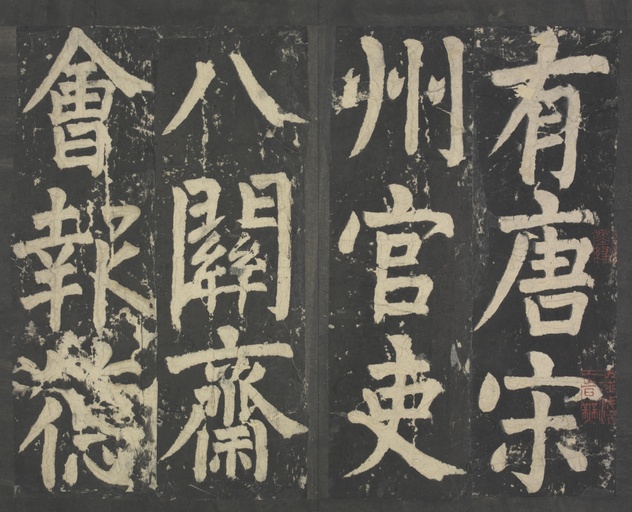 有唐宋
州官吏
八關齋
會報德